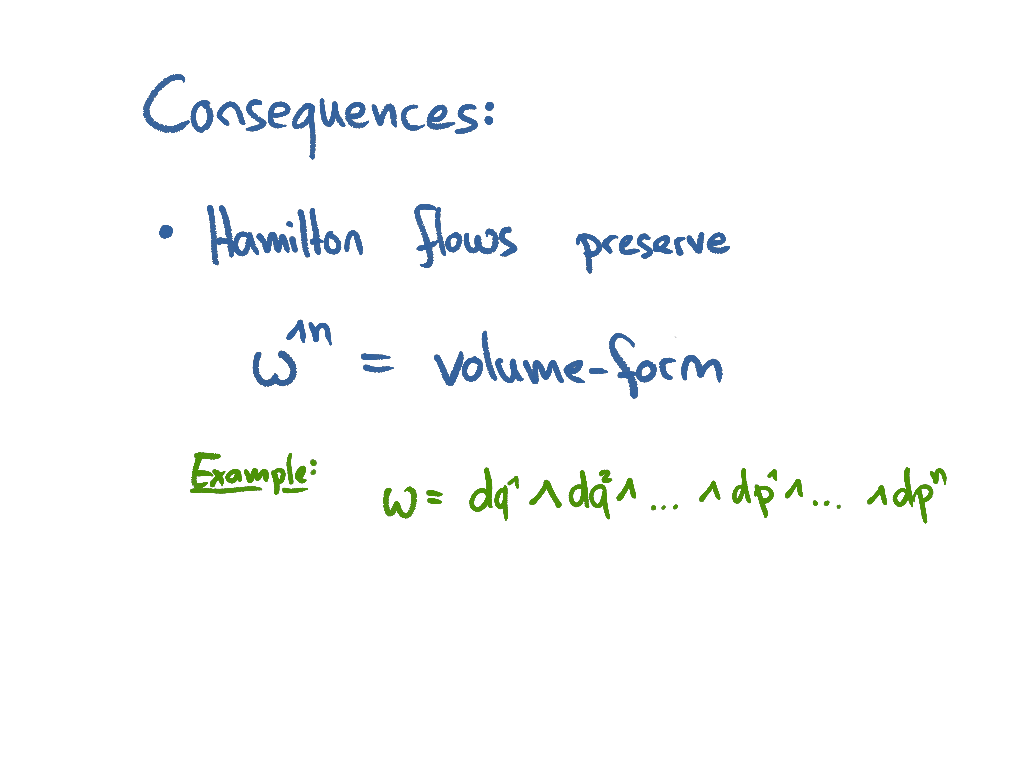 Consequences:
• Hamilton flows preserve
ω^∧n = volume-form
Example: ω = dq¹ ∧ dq² ∧ ... ∧ dp¹ ∧ ... ∧ dpⁿ